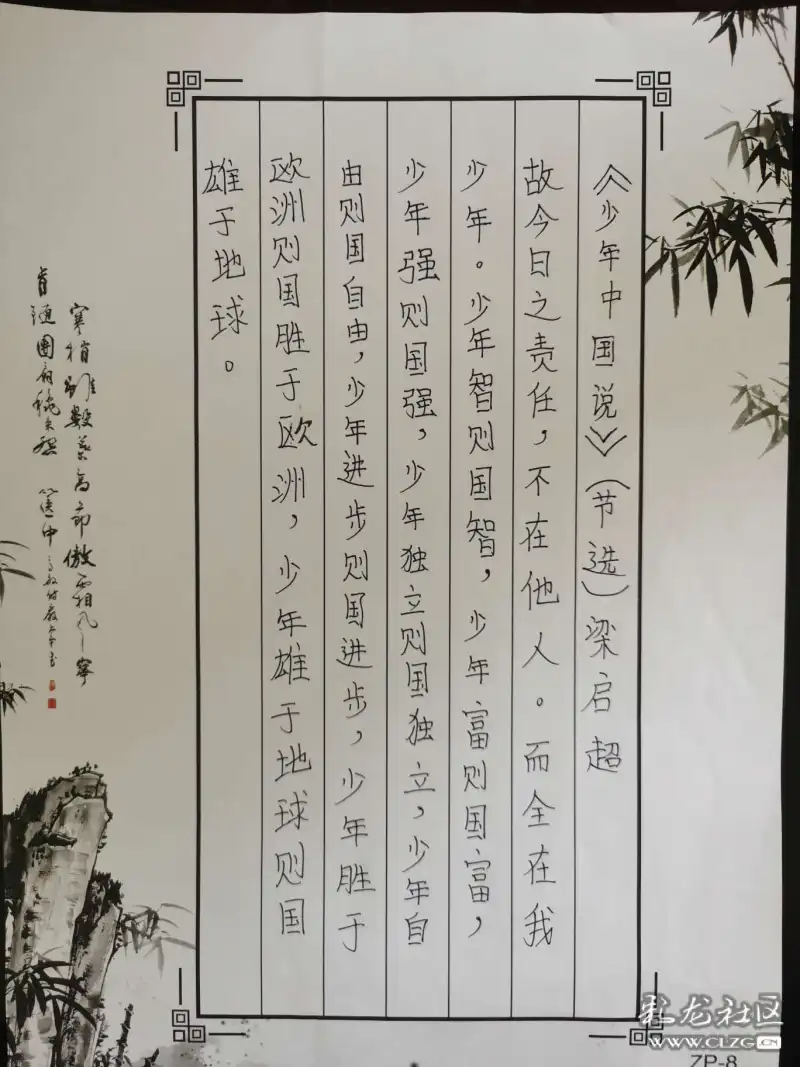 《少年中国说》(节选)梁启超
故今日之责任,不在他人。而全在我
少年。少年智则国智,少年富则国富,
少年强则国强,少年独立则国独立,少年自
由则国自由,少年进步则国进步,少年胜于
欧洲则国胜于欧洲,少年雄于地球则国
雄于地球。
彩龙社区
WWW.CLZG.CN
ZP-8